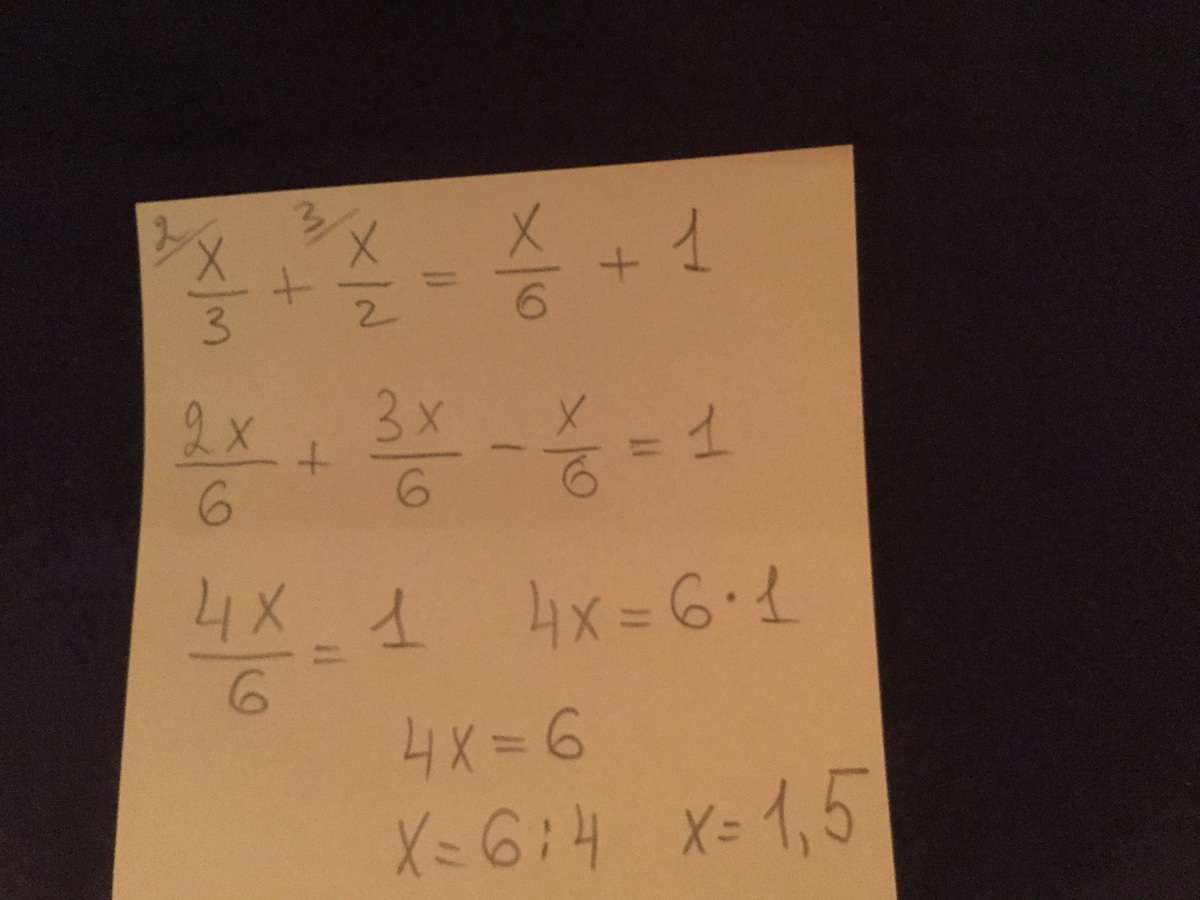 2/ x/3 + 3/ x/2 = x/6 + 1
2x/6 + 3x/6 - x/6 = 1
4x/6 = 1 4x = 6·1
4x = 6
x = 6:4 x = 1,5